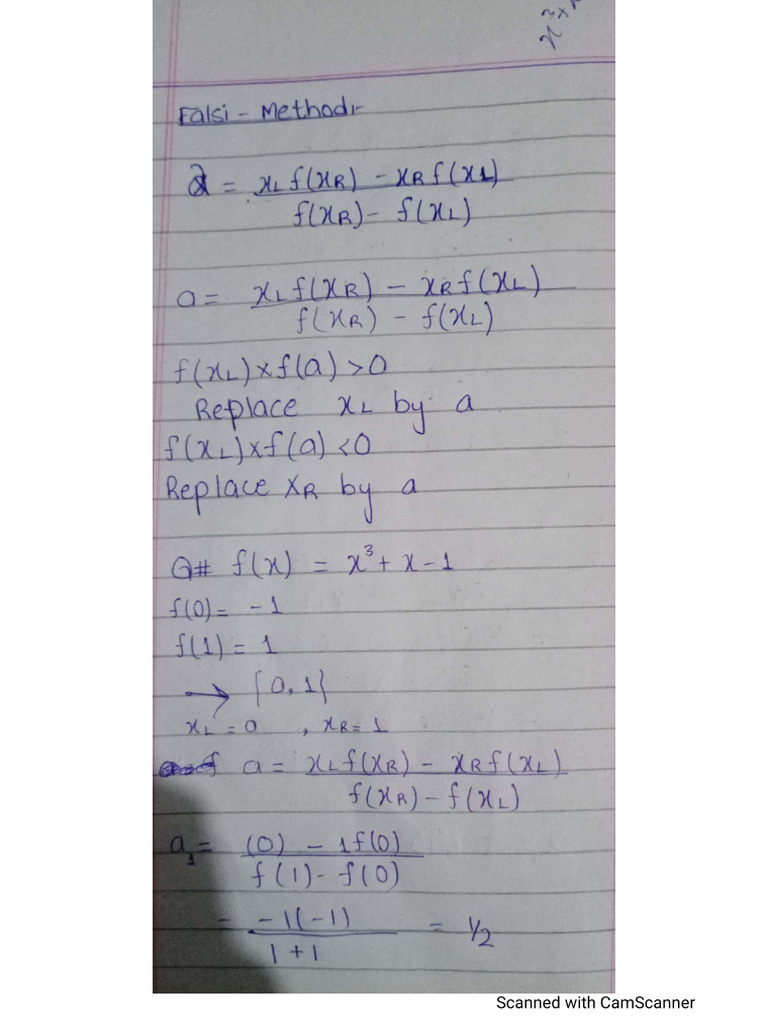 x³x
Falsi - Method:-
a = xL f(xR) - xR f(x1)
f(xR) - f(xL)
a = xL f(xR) - xR f(xL)
f(xR) - f(xL)
f(xL) × f(a) >0
Replace xL by a
f(xL) × f(a) <0
Replace xR by a
Q# f(x) = x³ + x - 1
f(0) = -1
f(1) = 1
→ {0, 1}
xL = 0 , xR = 1
a = xL f(xR) - xR f(xL)
f(xR) - f(xL)
a1 = (0) - 1f(0)
f(1) - f(0)
= -1(-1) = 1/2
1 + 1
Scanned with CamScanner